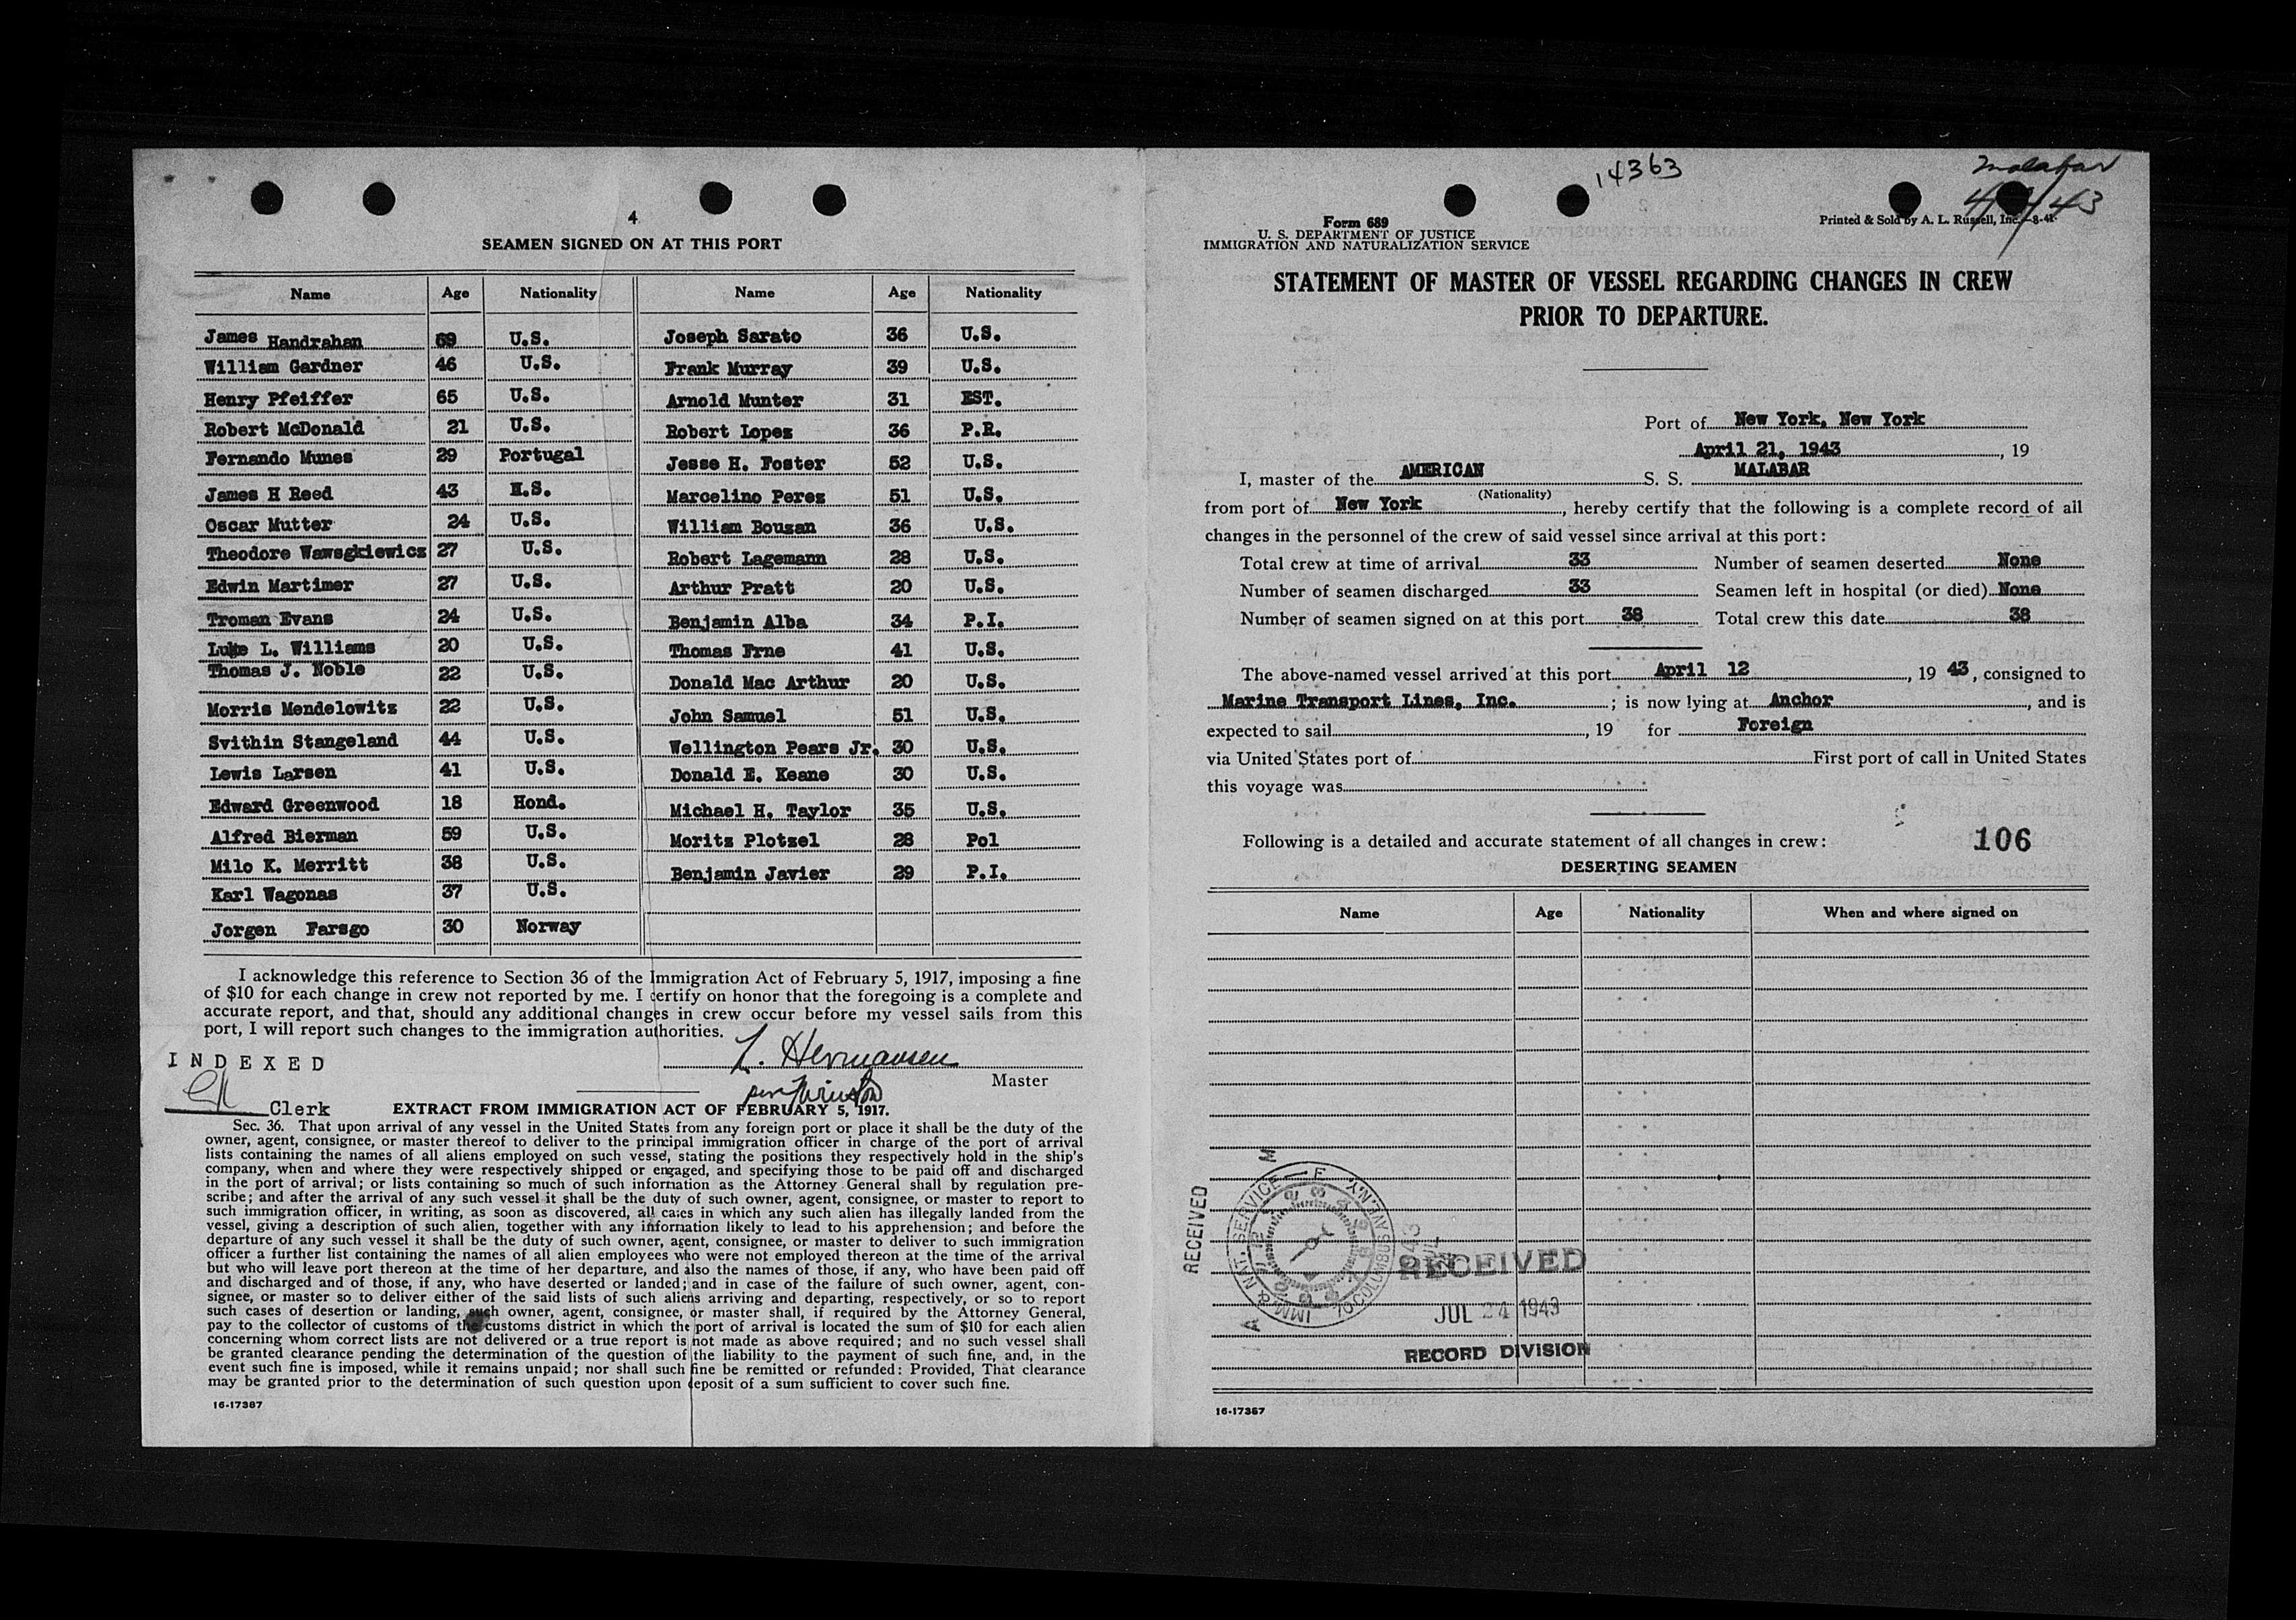 4
SEAMEN SIGNED ON AT THIS PORT
Name Age Nationality Name Age Nationality
James Handrahan 59 U.S. Joseph Sarato 36 U.S.
William Gardner 46 U.S. Frank Murray 39 U.S.
Henry Pfeiffer 65 U.S. Arnold Munter 31 EST.
Robert McDonald 21 U.S. Robert Lopez 36 P.R.
Fernando Munes 29 Portugal Jesse H. Foster 52 U.S.
James H Reed 43 U.S. Marcelino Perez 51 U.S.
Oscar Mutter 24 U.S. William Bouzan 36 U.S.
Theodore Wawsgkiewicz 27 U.S. Robert Lagemann 28 U.S.
Edwin Martimer 27 U.S. Arthur Pratt 20 U.S.
Troman Evans 24 U.S. Benjamin Alba 34 P.I.
Luke L. Williams 20 U.S. Thomas Frne 41 U.S.
Thomas J. Noble 22 U.S. Donald Mac Arthur 20 U.S.
Morris Mendelowitz 22 U.S. John Samuel 51 U.S.
Svithin Stangeland 44 U.S. Wellington Pears Jr. 30 U.S.
Lewis Larsen 41 U.S. Donald E. Keane 30 U.S.
Edward Greenwood 18 Hond. Michael H. Taylor 35 U.S.
Alfred Bierman 59 U.S. Moritz Plotzel 28 Pol
Milo K. Merritt 38 U.S. Benjamin Javier 29 P.I.
Karl Wagonas 37 U.S.
Jorgen Farsgo 30 Norway
I acknowledge this reference to Section 36 of the Immigration Act of February 5, 1917, imposing a fine
of $10 for each change in crew not reported by me. I certify on honor that the foregoing is a complete and
accurate report, and that, should any additional changes in crew occur before my vessel sails from this
port, I will report such changes to the immigration authorities.
L. Hermansen
Master
INDEXED
Clerk
EXTRACT FROM IMMIGRATION ACT OF FEBRUARY 5, 1917.
Sec. 36. That upon arrival of any vessel in the United States from any foreign port or place it shall be the duty of the
owner, agent, consignee, or master thereof to deliver to the principal immigration officer in charge of the port of arrival
lists containing the names of all aliens employed on such vessel, stating the positions they respectively hold in the ship's
company, when and where they were respectively shipped or engaged, and specifying those to be paid off and discharged
in the port of arrival; or lists containing so much of such information as the Attorney General shall by regulation pre-
scribe; and after the arrival of any such vessel it shall be the duty of such owner, agent, consignee, or master to report to
such immigration officer, in writing, as soon as discovered, all cases in which any such alien has illegally landed from the
vessel, giving a description of such alien, together with any information likely to lead to his apprehension; and before the
departure of any such vessel it shall be the duty of such owner, agent, consignee, or master to deliver to such immigration
officer a further list containing the names of all alien employees who were not employed thereon at the time of the arrival
but who will leave port thereon at the time of her departure, and also the names of those, if any, who have been paid off
and discharged and of those, if any, who have deserted or landed; and in case of the failure of such owner, agent, con-
signee, or master so to deliver either of the said lists of such aliens arriving and departing, respectively, or so to report
such cases of desertion or landing, such owner, agent, consignee, or master shall, if required by the Attorney General,
pay to the collector of customs of the customs district in which the port of arrival is located the sum of $10 for each alien
concerning whom correct lists are not delivered or a true report is not made as above required; and no such vessel shall
be granted clearance pending the determination of the question of the liability to the payment of such fine, and, in the
event such fine is imposed, while it remains unpaid; nor shall such fine be remitted or refunded: Provided, That clearance
may be granted prior to the determination of such question upon deposit of a sum sufficient to cover such fine.
16-17387
14363
Malabar
Form 689
U. S. DEPARTMENT OF JUSTICE
IMMIGRATION AND NATURALIZATION SERVICE
Printed & Sold by A. L. Russell, Inc.—8-41
STATEMENT OF MASTER OF VESSEL REGARDING CHANGES IN CREW
PRIOR TO DEPARTURE.
Port of New York, New York
April 21, 1943, 19
I, master of the AMERICAN S. S. MALABAR
(Nationality)
from port of New York, hereby certify that the following is a complete record of all
changes in the personnel of the crew of said vessel since arrival at this port:
Total crew at time of arrival 33 Number of seamen deserted None
Number of seamen discharged 33 Seamen left in hospital (or died) None
Number of seamen signed on at this port 38 Total crew this date 38
The above-named vessel arrived at this port April 12, 1943, consigned to
Marine Transport Lines, Inc.; is now lying at Anchor, and is
expected to sail, 19 for Foreign
via United States port of First port of call in United States
this voyage was
Following is a detailed and accurate statement of all changes in crew:
106
DESERTING SEAMEN
Name Age Nationality When and where signed on
RECEIVED
IMM & NAT. SERVICE
70 COLUMBUS AVE N.Y.
RECEIVED
JUL 24 1943
RECORD DIVISION
16-17387